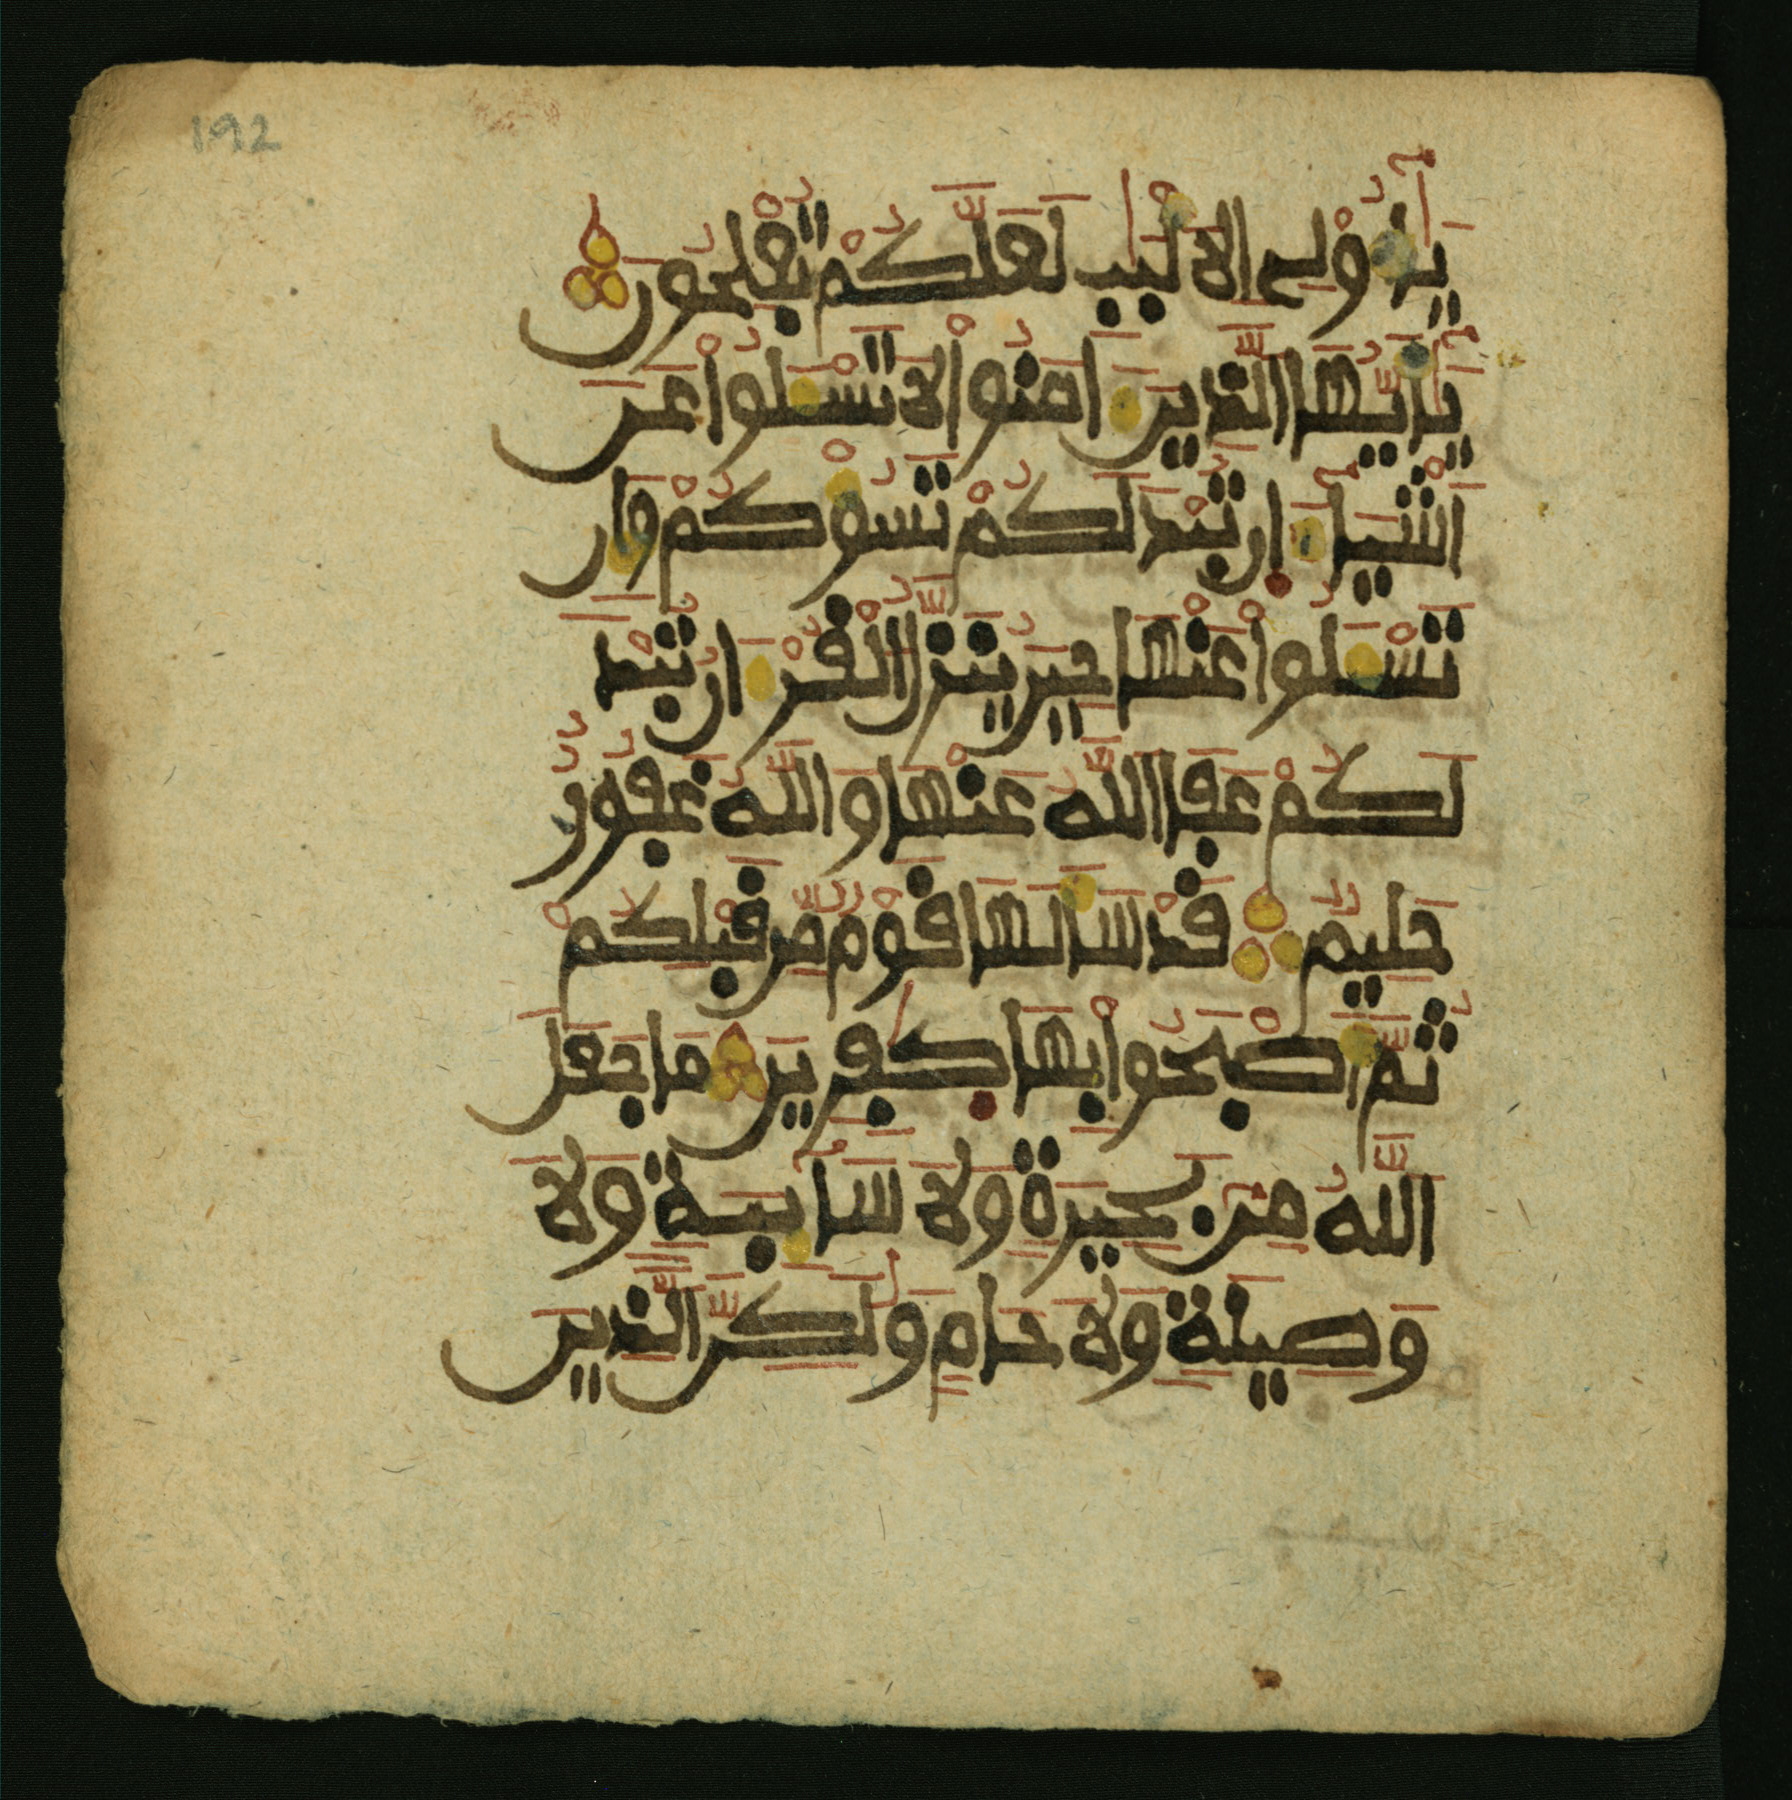 192
يَٰٓأُوْلِي اَ۬لَالْبَٰبِ لَعَلَّكُمْ تُفْلِحُونَ
يَٰٓأَيُّهَا اَ۬لذِينَ ءَامَنُواْ لَا تَسْـَٔلُواْ عَنَ
اَشْيَآءَ ان تُبْدَ لَكُمْ تَسُؤْكُمْ وَإِن
تَسْـَٔلُواْ عَنْهَا حِينَ يُنَزَّلُ اُ۬لْقُرْءَانُ تُبْدَ
لَكُمْ عَفَا اَ۬للَّهُ عَنْهَا وَاللَّهُ غَفُورٌ
حَلِيمٌ قَدْ سَأَلَهَا قَوْمٌ مِّن قَبْلِكُمْ
ثُمَّ أَصْبَحُواْ بِهَا كَٰفِرِينَ مَا جَعَلَ
اَ۬للَّهُ مِنۢ بَحِيرَةٍ وَلَا سَآئِبَةٍ وَلَا
وَصِيلَةٍ وَلَا حَامٍ وَلَٰكِنَّ اَ۬لذِينَ